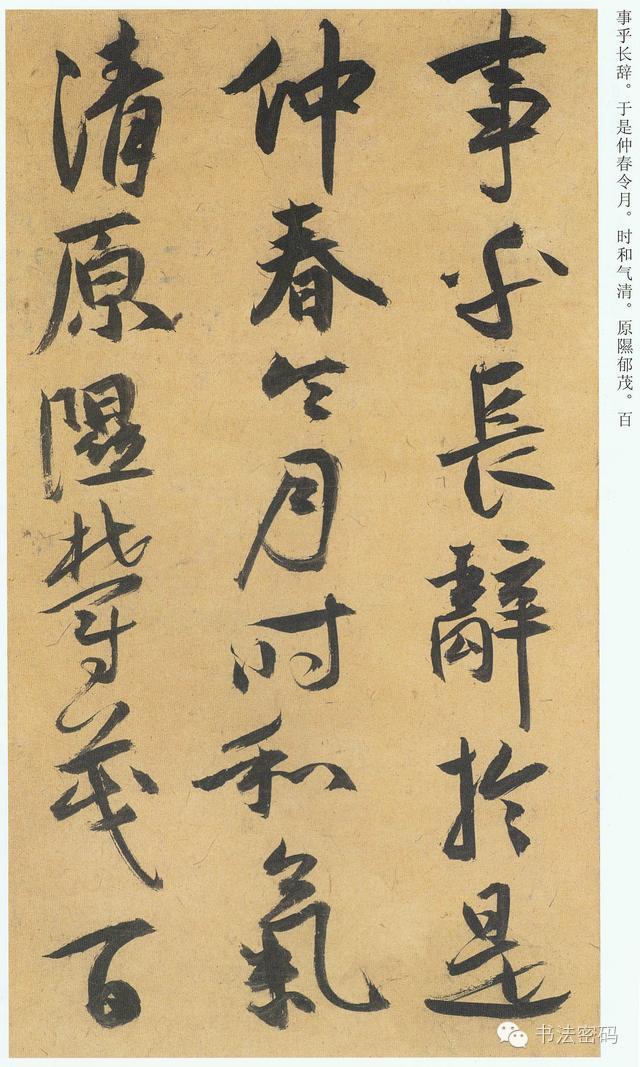 事乎長辭於是
仲春令月时和氣
清原隰鬱茂百
事乎长辞。于是仲春令月。时和气清。原隰郁茂。百
书法密码